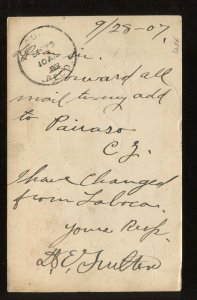 9/28-07.
Dear sir.
Forward all
mail to my add
to Paraiso
C Z.
I have Changed
from Taboca.
Yours Resp.
D. E. Fulton